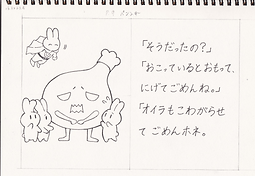 「そうだったの?」
「おこっているとおもって、
にげてごめんね。」
「オイラもこわがらせ
てごめんホネ。